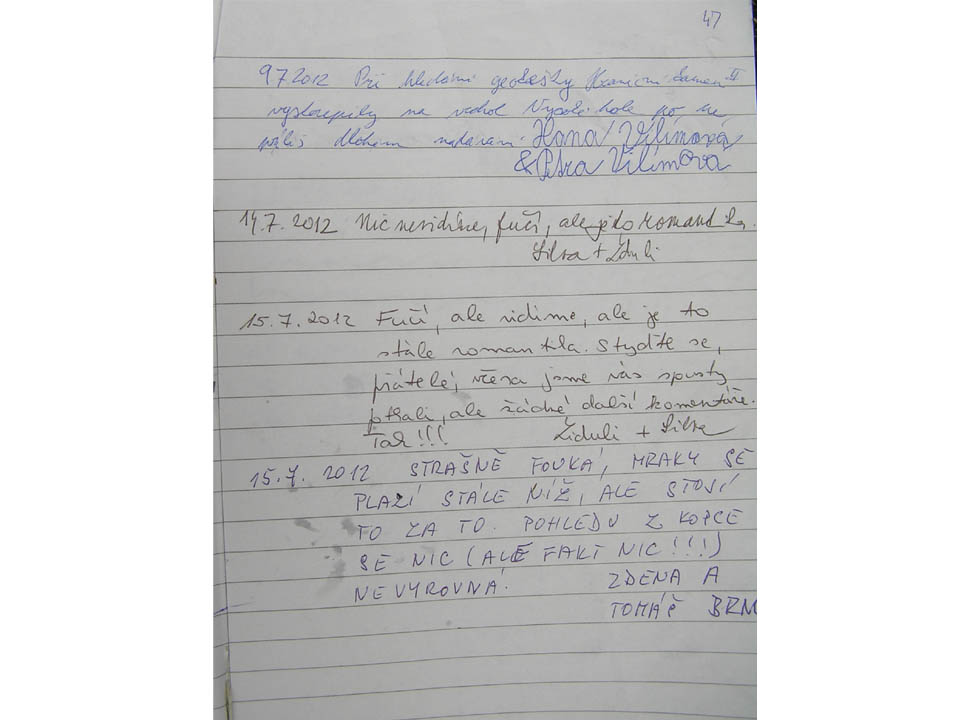 47
9.7.2012 Při hledání geokešky Hraniční kámen II
vystoupily na vrchol Vysoké hole po ne
příliš dlouhém Hana Vilímová
& Petra Vilímova
14.7.2012 Nic nevidíme, fučí, ale je to romantika.
Silva + Židuli
15.7.2012 Fučí, ale vidíme, ale je to
stále romantika. Styďte se,
přátelé, včera jsme vás spusty
ptkali, ale žádné další komentáře.
Tak!!! Židuli + Silva
15.7.2012 STRAŠNĚ FOUKÁ, MRAKY SE
PLAZÍ STÁLE NÍŽ, ALE STOJÍ
TO ZA TO. POHLEDU Z KOPCE
SE NIC (ALE FAKT NIC!!!)
NEVYROVNÁ. ZDENA A
TOMÁŠ BRN